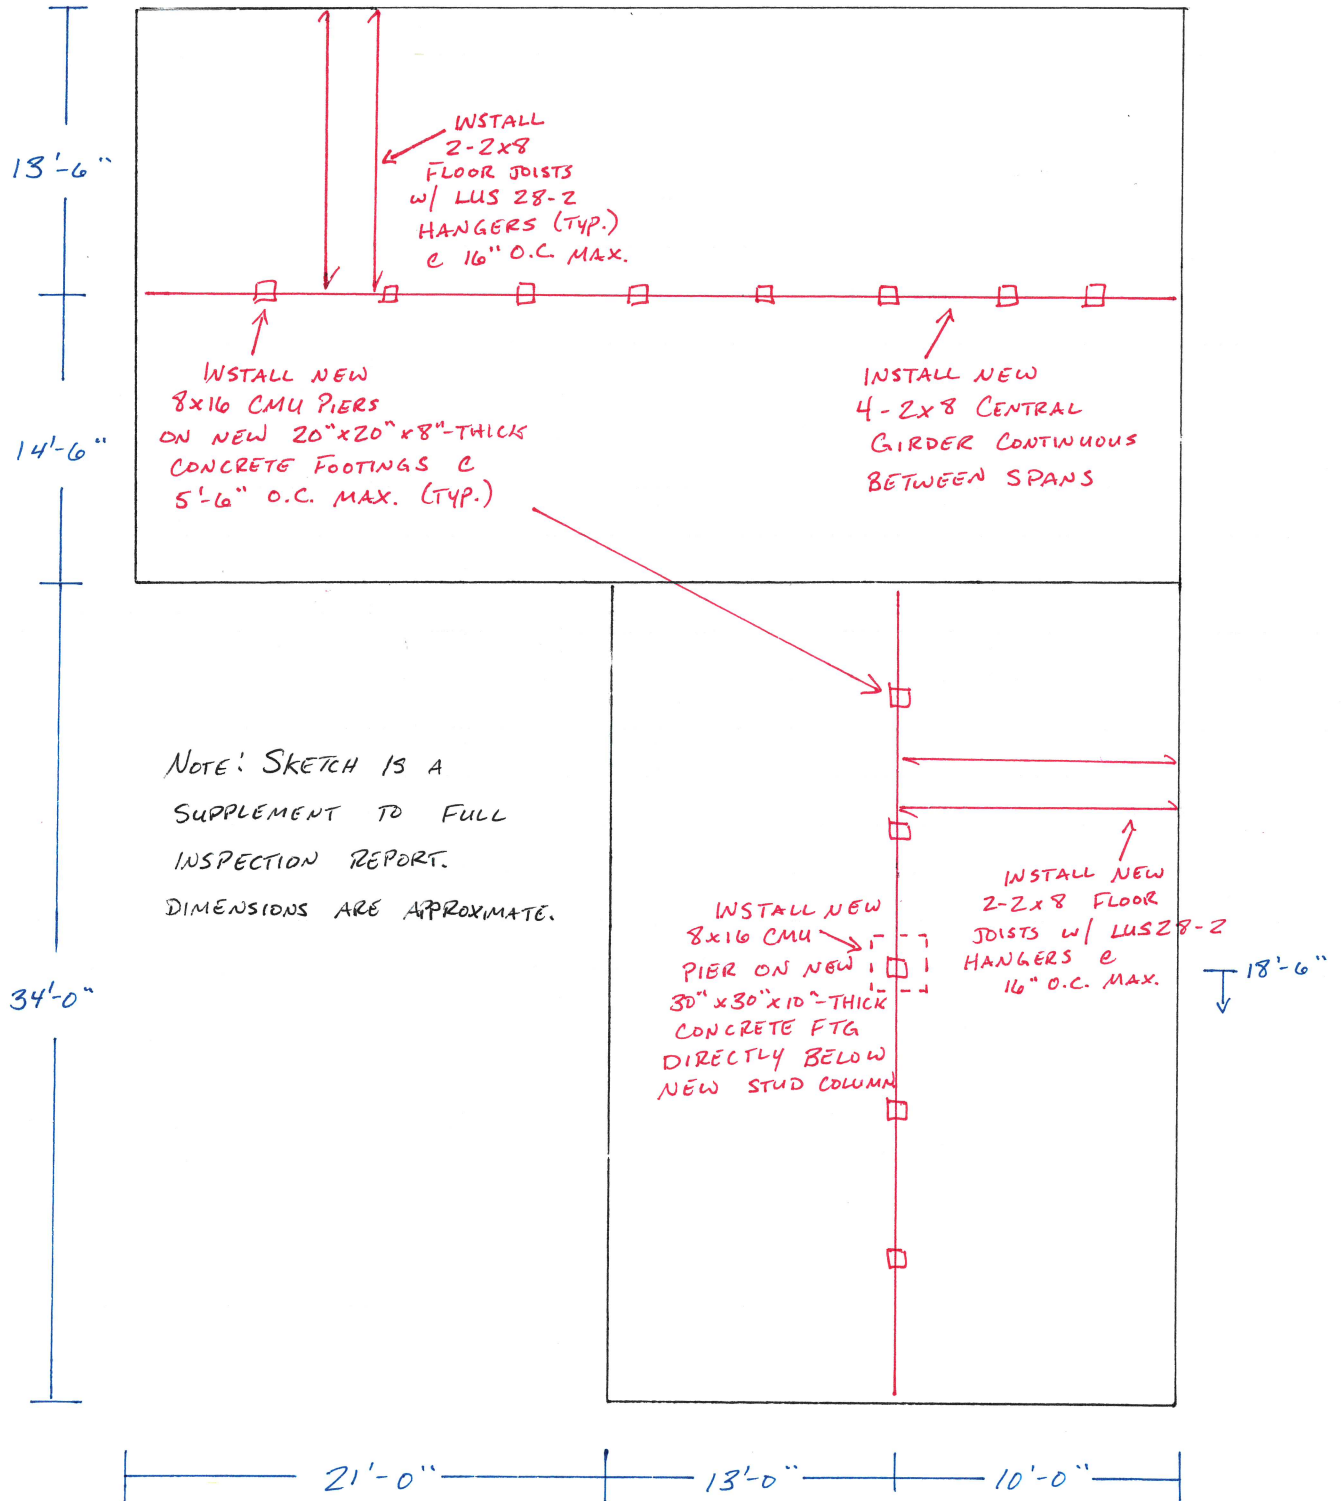 13'-6"
INSTALL
2-2x8
FLOOR JOISTS
w/ LUS 28-2
HANGERS (TYP.)
@ 16" O.C. MAX.
INSTALL NEW
8x16 CMU PIERS
ON NEW 20"x20"x8"-THICK
CONCRETE FOOTINGS @
5'-6" O.C. MAX. (TYP.)
INSTALL NEW
4-2x8 CENTRAL
GIRDER CONTINUOUS
BETWEEN SPANS
14'-6"
NOTE: SKETCH IS A
SUPPLEMENT TO FULL
INSPECTION REPORT.
DIMENSIONS ARE APPROXIMATE.
INSTALL NEW
8x16 CMU
PIER ON NEW
30"x30"x10"-THICK
CONCRETE FTG
DIRECTLY BELOW
NEW STUD COLUMN
INSTALL NEW
2-2x8 FLOOR
JOISTS w/ LUS28-2
HANGERS @
16" O.C. MAX.
18'-6"
34'-0"
21'-0"
13'-0"
10'-0"